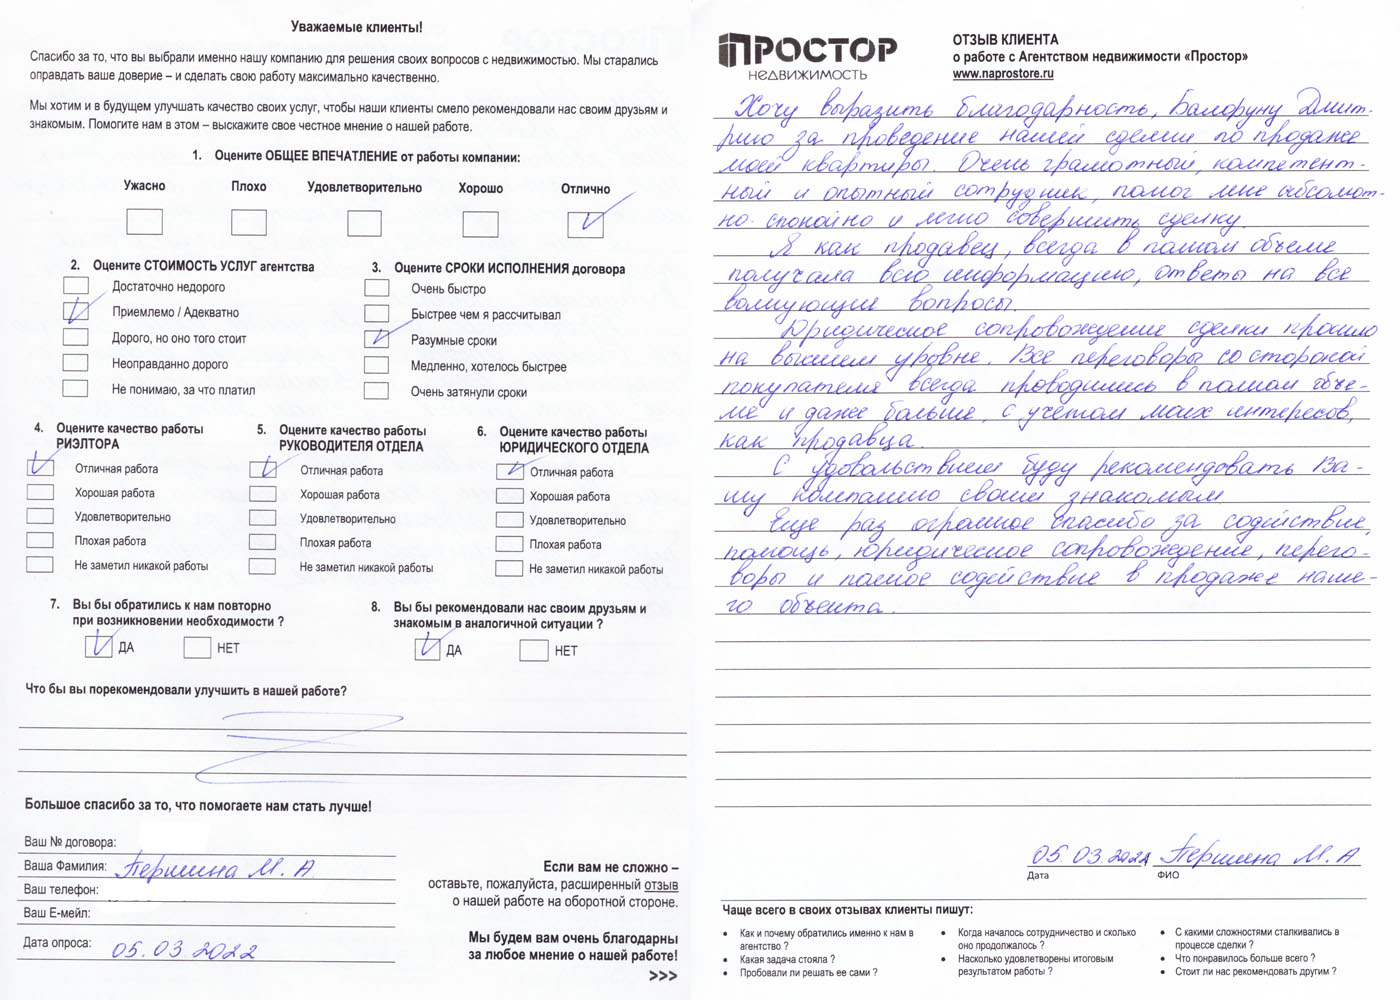 Уважаемые клиенты!
Спасибо за то, что вы выбрали именно нашу компанию для решения своих вопросов с недвижимостью. Мы старались
оправдать ваше доверие – и сделать свою работу максимально качественно.
Мы хотим и в будущем улучшать качество своих услуг, чтобы наши клиенты смело рекомендовали нас своим друзьям и
знакомым. Помогите нам в этом – выскажите свое честное мнение о нашей работе.
1. Оцените ОБЩЕЕ ВПЕЧАТЛЕНИЕ от работы компании:
Ужасно Плохо Удовлетворительно Хорошо Отлично
2. Оцените СТОИМОСТЬ УСЛУГ агентства
Достаточно недорого
Приемлемо / Адекватно
Дорого, но оно того стоит
Неоправданно дорого
Не понимаю, за что платил
3. Оцените СРОКИ ИСПОЛНЕНИЯ договора
Очень быстро
Быстрее чем я рассчитывал
Разумные сроки
Медленно, хотелось быстрее
Очень затянули сроки
4. Оцените качество работы
РИЭЛТОРА
Отличная работа
Хорошая работа
Удовлетворительно
Плохая работа
Не заметил никакой работы
5. Оцените качество работы
РУКОВОДИТЕЛЯ ОТДЕЛА
Отличная работа
Хорошая работа
Удовлетворительно
Плохая работа
Не заметил никакой работы
6. Оцените качество работы
ЮРИДИЧЕСКОГО ОТДЕЛА
Отличная работа
Хорошая работа
Удовлетворительно
Плохая работа
Не заметил никакой работы
7. Вы бы обратились к нам повторно
при возникновении необходимости ?
ДА НЕТ
8. Вы бы рекомендовали нас своим друзьям и
знакомым в аналогичной ситуации ?
ДА НЕТ
Что бы вы порекомендовали улучшить в нашей работе?
Большое спасибо за то, что помогаете нам стать лучше!
Ваш № договора:
Ваша Фамилия: Першина М. А
Ваш телефон:
Ваш Е-мейл:
Дата опроса: 05.03.2022
Если вам не сложно –
оставьте, пожалуйста, расширенный отзыв
о нашей работе на оборотной стороне.
Мы будем вам очень благодарны
за любое мнение о нашей работе!
>>>
ПРОСТОР
НЕДВИЖИМОСТЬ
ОТЗЫВ КЛИЕНТА
о работе с Агентством недвижимости «Простор»
www.naprostore.ru
Хочу выразить благодарность, Дмит-
рию за проведение нашей сделки по продаже
моей квартиры. Очень грамотный, компетент-
ный и опытный сотрудник, помог мне абсолют-
но спокойно и легко совершить сделку.
Я как продавец, всегда в полном объеме
получала всю информацию, ответы на все
волнующие вопросы.
Юридическое сопровождение сделки прошло
на высшем уровне. Все переговоры со стороной
покупателя всегда проводились в полном объе-
ме и даже больше, с учетом моих интересов,
как продавца.
С удовольствием буду рекомендовать Ва-
шу компанию своим знакомым.
Еще раз огромное спасибо за содействие,
помощь, юридическое сопровождение, перего-
воры и полное содействие в продаже наше-
го объекта.
05.03.2022 Першина М. А
Дата ФИО
Чаще всего в своих отзывах клиенты пишут:
• Как и почему обратились именно к нам в
агентство ?
• Какая задача стояла ?
• Пробовали ли решать ее сами ?
• Когда началось сотрудничество и сколько
оно продолжалось ?
• Насколько удовлетворены итоговым
результатом работы ?
• С какими сложностями сталкивались в
процессе сделки ?
• Что понравилось больше всего ?
• Стоит ли нас рекомендовать другим ?